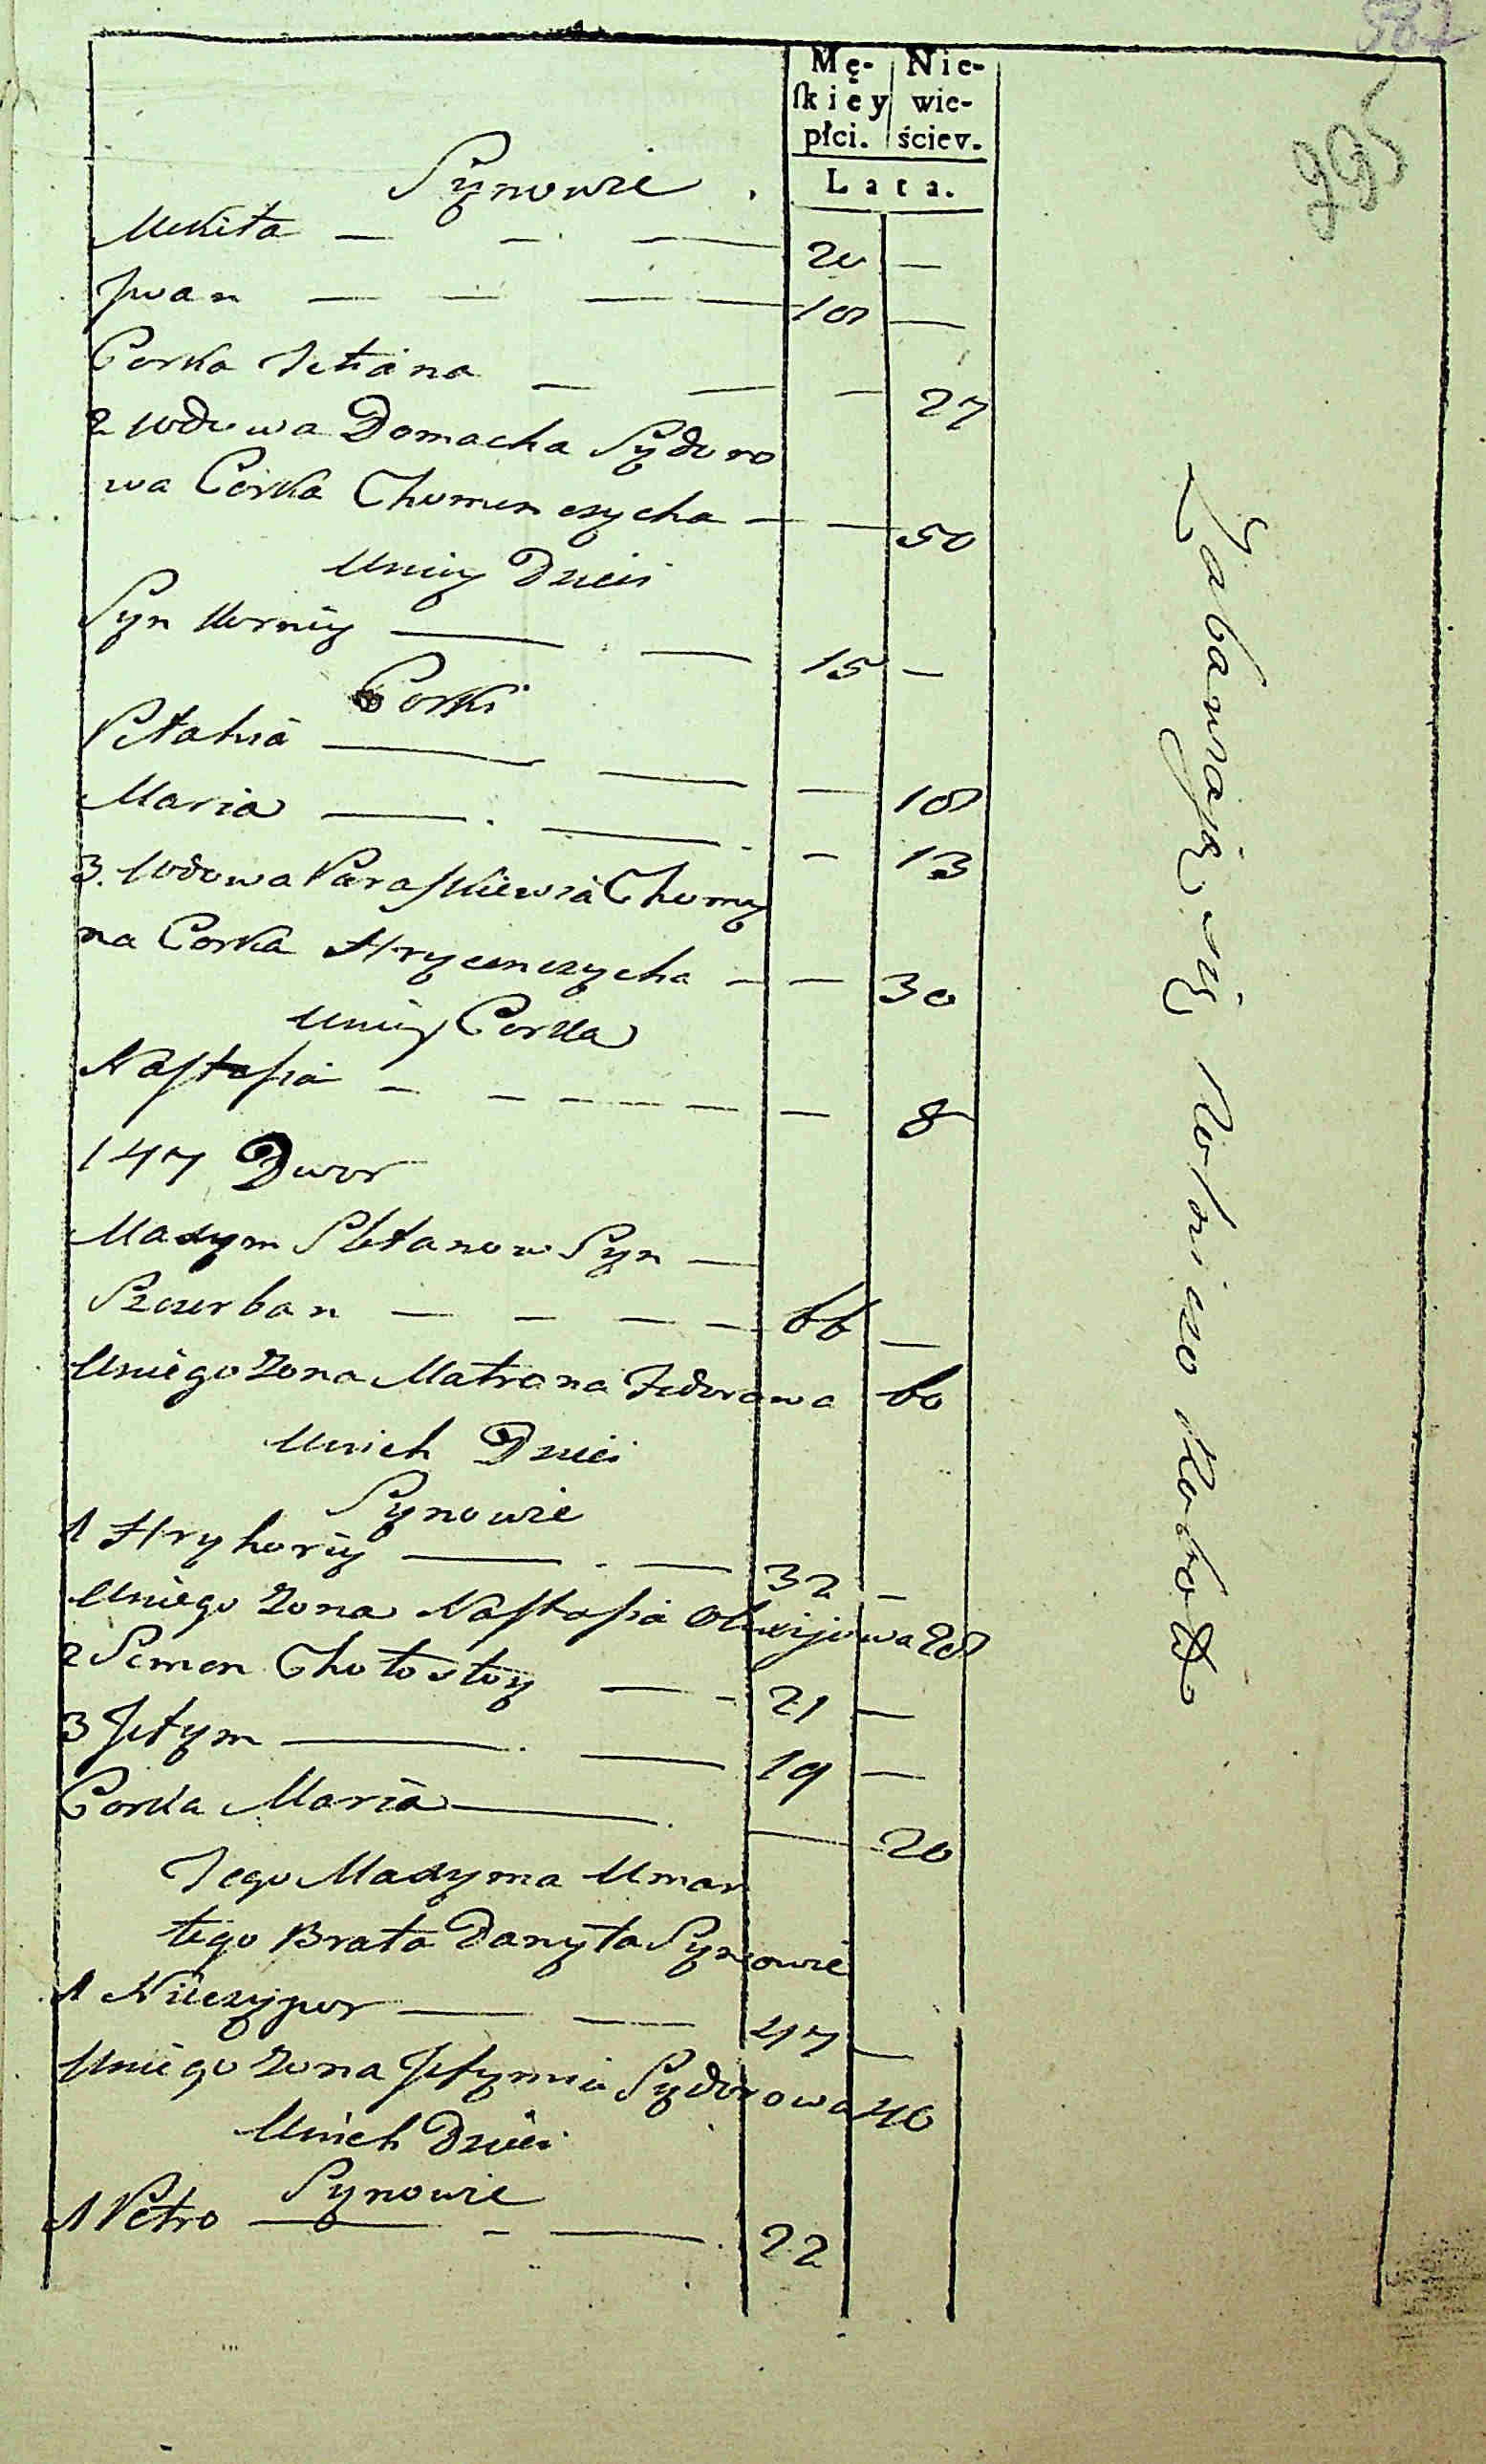 587
995
Mę- Nie-
ſkiey wie-
płci. ściey.
Lata.
Synowie
Mikita — — — 20 —
Jwan — — — — 18 —
Corka Tetiana — — — 27
2 Wdowa Domacha Sydoro
wa Corka Chomenczycha — — 50
Uniey Dzieci
Syn Kornиy — — 15 —
Corki
Pełahia — — — 18
Maria — — — 13
3. Wdowa Paraſkiewia Chomy
na Corka Hrycenczycha — — 30
Uniey Corka
Naſtaſia — — — — — — 8
147 Dwor
Maxym Stefanow Syn —
Szczerban — — — — 66 —
Uniego Zona Matrona Fedorowa 60
Unich Dzieci
Synowie
1 Hryhoriy — — 32 —
Uniego Zona Naſtaſia Olexijowa 28
2 Semen Chołosty — — 21 —
3 Jefym — — 19 —
Corka Maria — — 20
Tego Maxyma Umar
łego Brata Danyła Synowie
1 Niczypor — — 47 —
Uniego Zona Jefymia Sydorowa 40
Unich Dzieci
Synowie
1 Petro — — — 22
Zabawiaią się Rolniczo Robotą